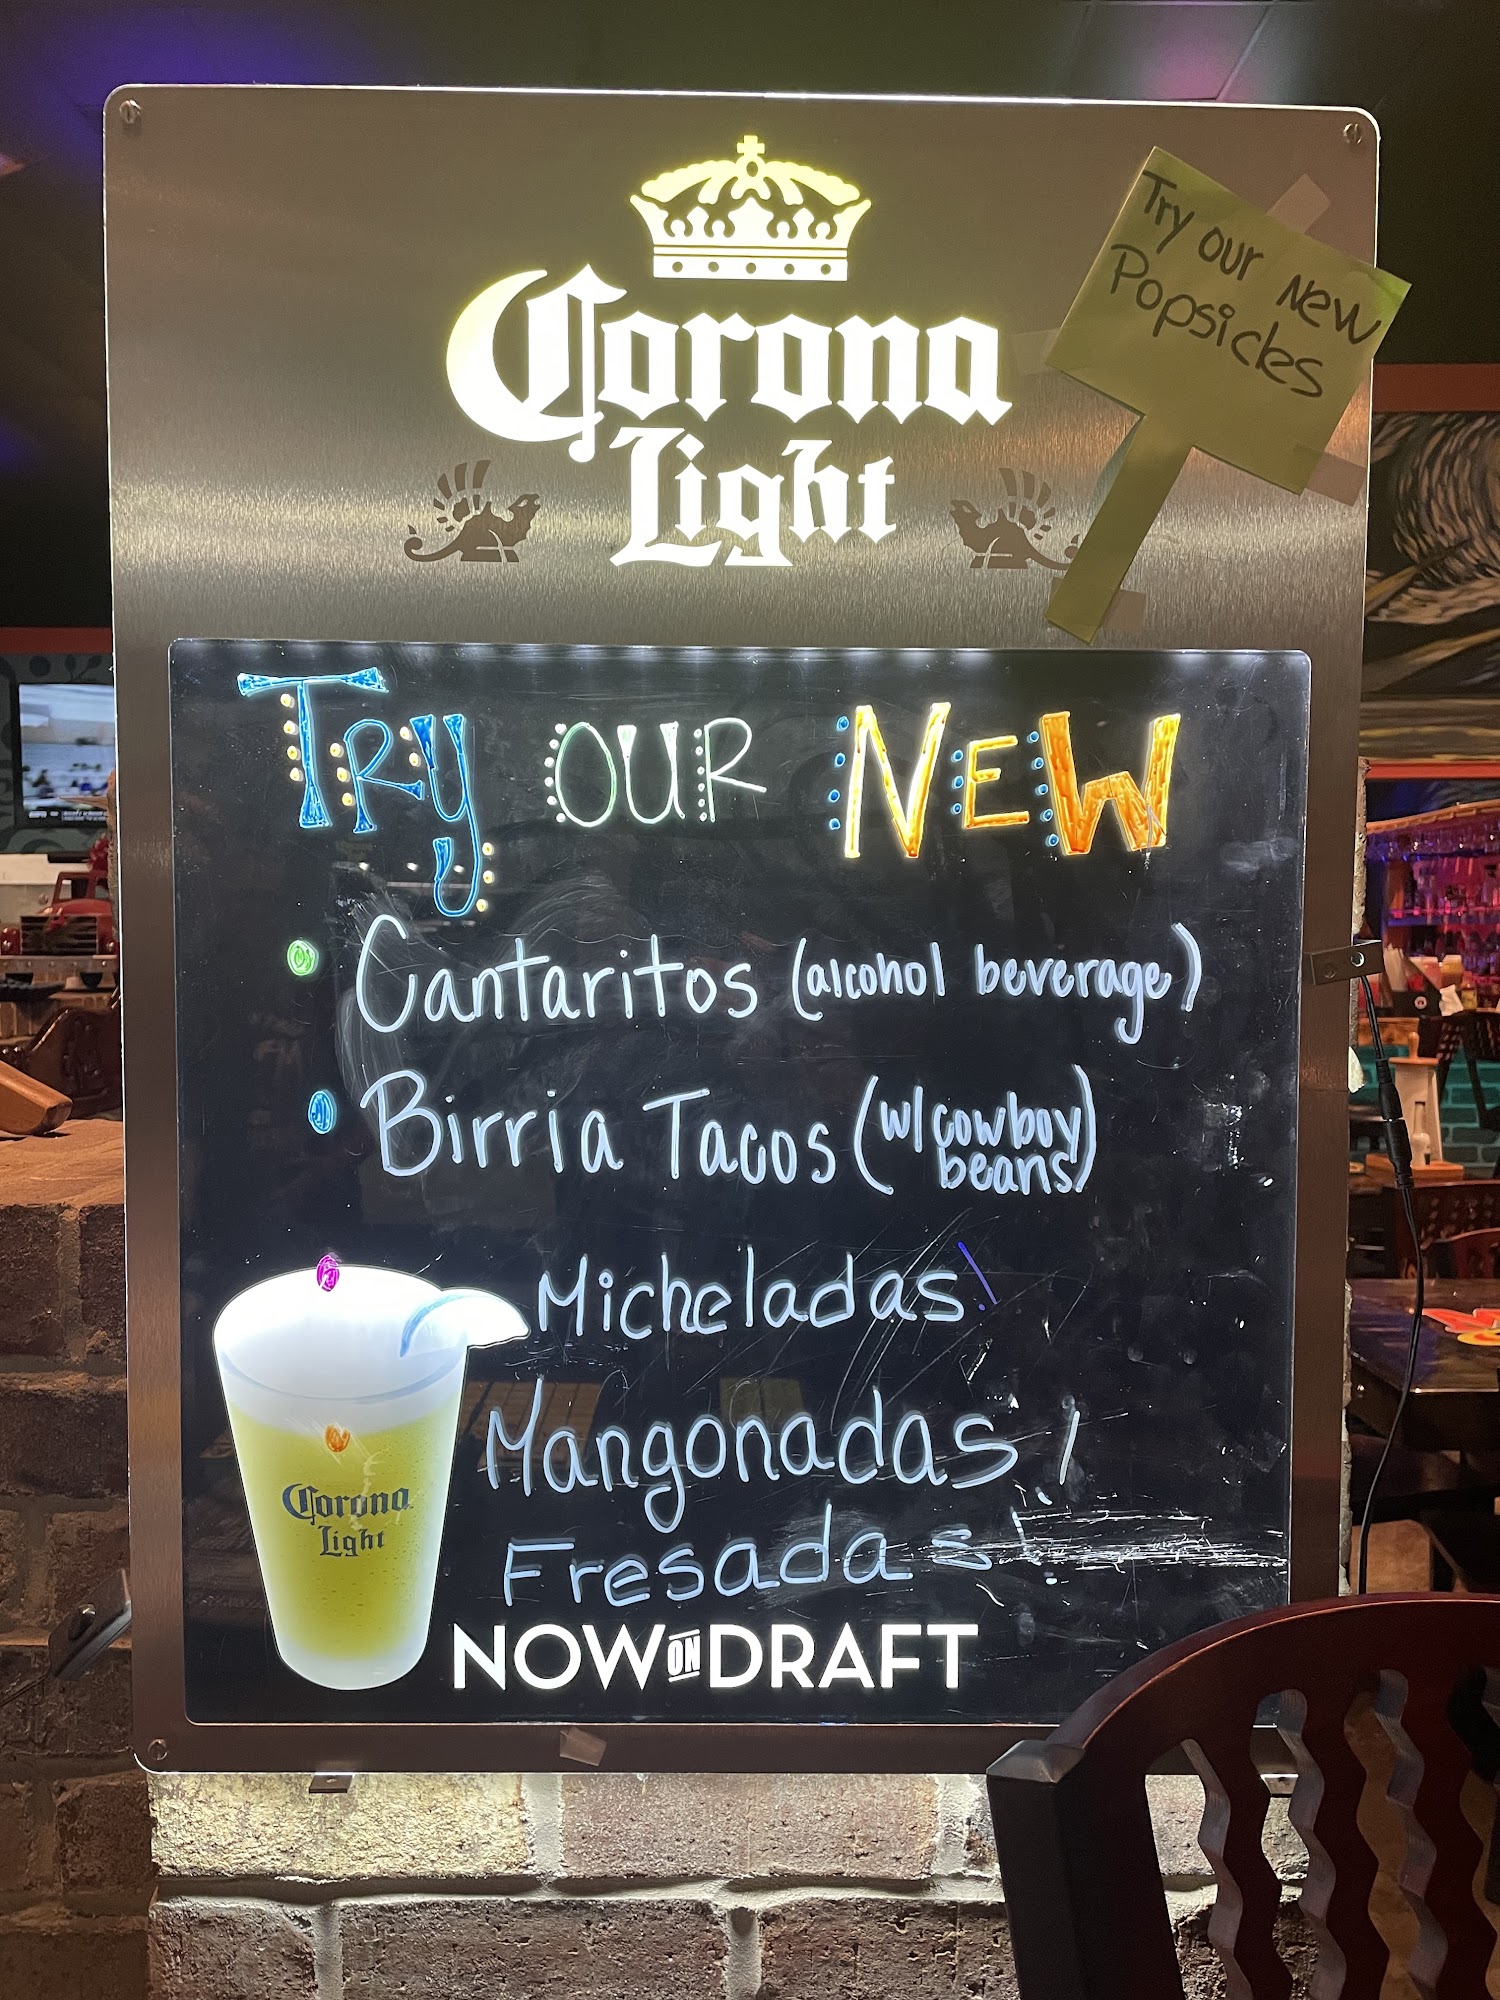 Corona
Light
Try our New
Popsicles
TRy OUR NEW
Cantaritos (alcohol beverage)
Birria Tacos (w/ cowboy
beans)
Micheladas!
Mangonadas!
Fresadas!
Corona
Light
NOW ON DRAFT